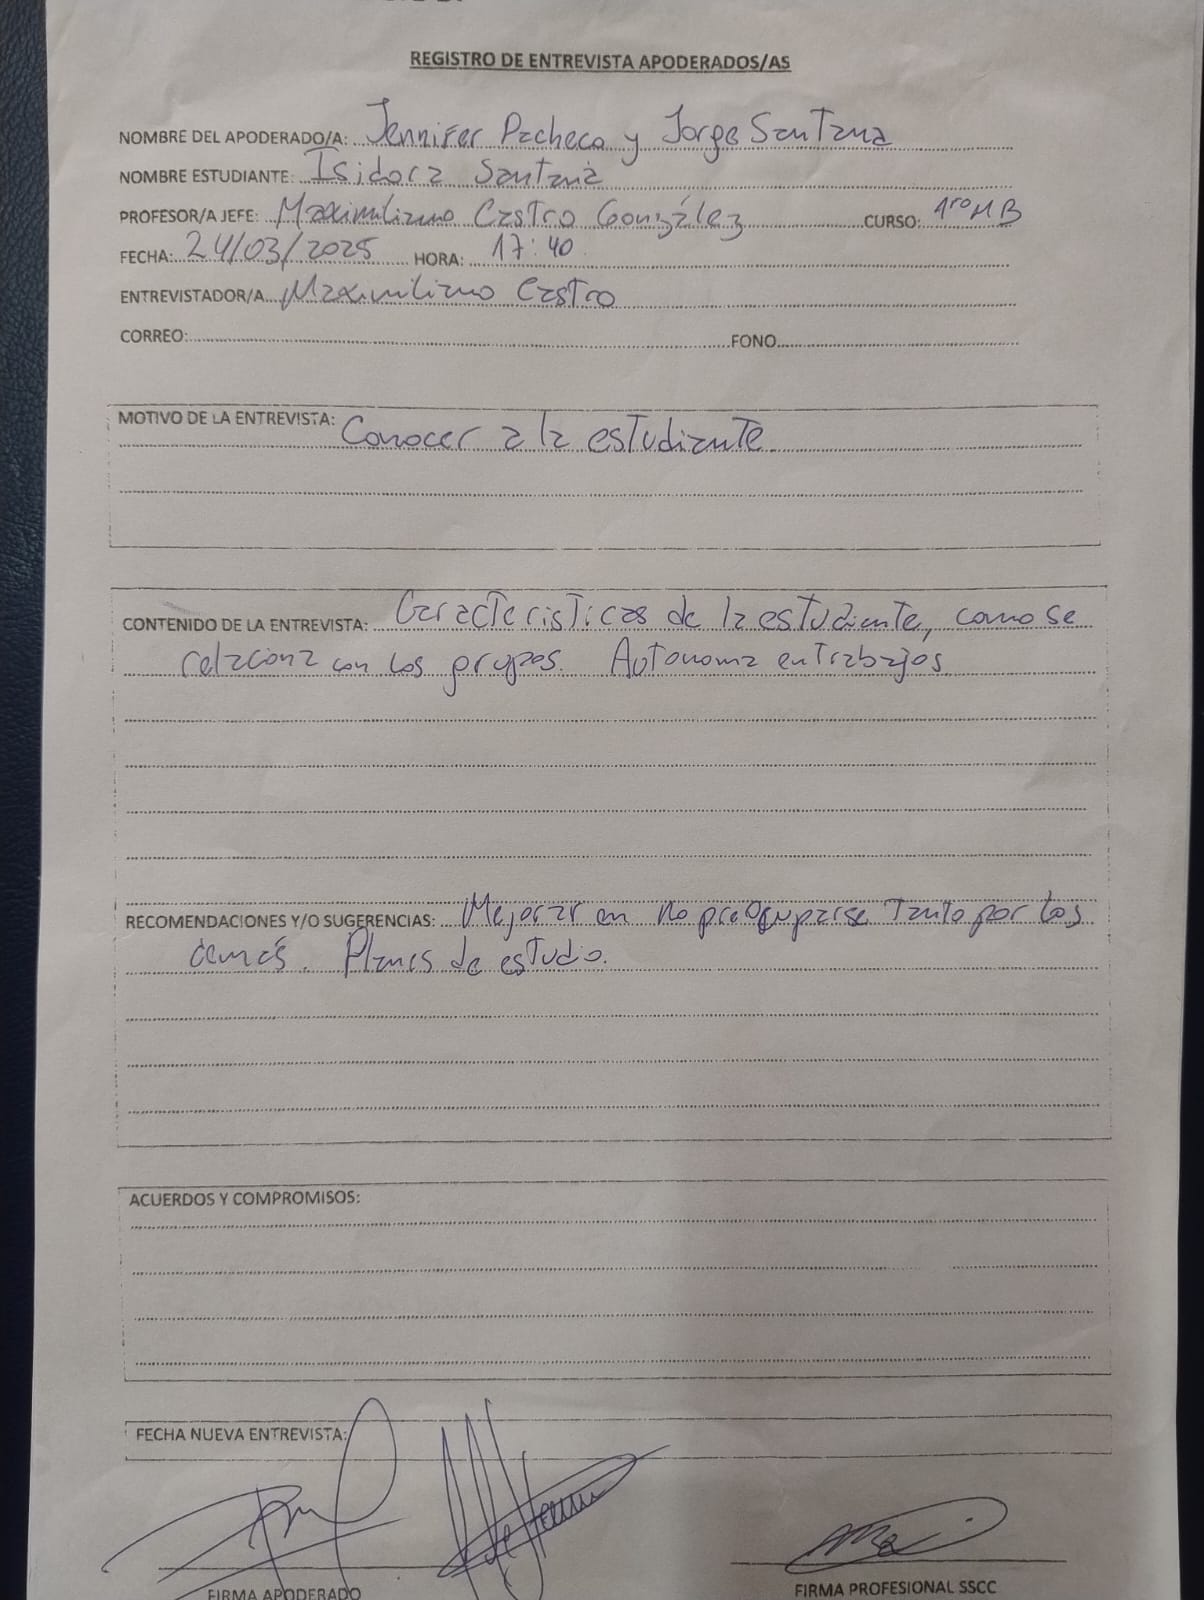 REGISTRO DE ENTREVISTA APODERADOS/AS
NOMBRE DEL APODERADO/A: Jennifer Pacheco y Jorge Santana
NOMBRE ESTUDIANTE: Isidora Santana
PROFESOR/A JEFE: Maximiliano Castro González CURSO: 1ro M B
FECHA: 24/03/2025 HORA: 17:40
ENTREVISTADOR/A Maximiliano Castro
CORREO: FONO
MOTIVO DE LA ENTREVISTA: Conocer a la estudiante
CONTENIDO DE LA ENTREVISTA: Caracteristicas de la estudiante, como se
relaciona con los grupos. Autonoma en trabajos.
RECOMENDACIONES Y/O SUGERENCIAS: Mejorar en no preocuparse tanto por los
demás. Planes de estudio.
ACUERDOS Y COMPROMISOS:
FECHA NUEVA ENTREVISTA:
FIRMA APODERADO FIRMA PROFESIONAL SSCC